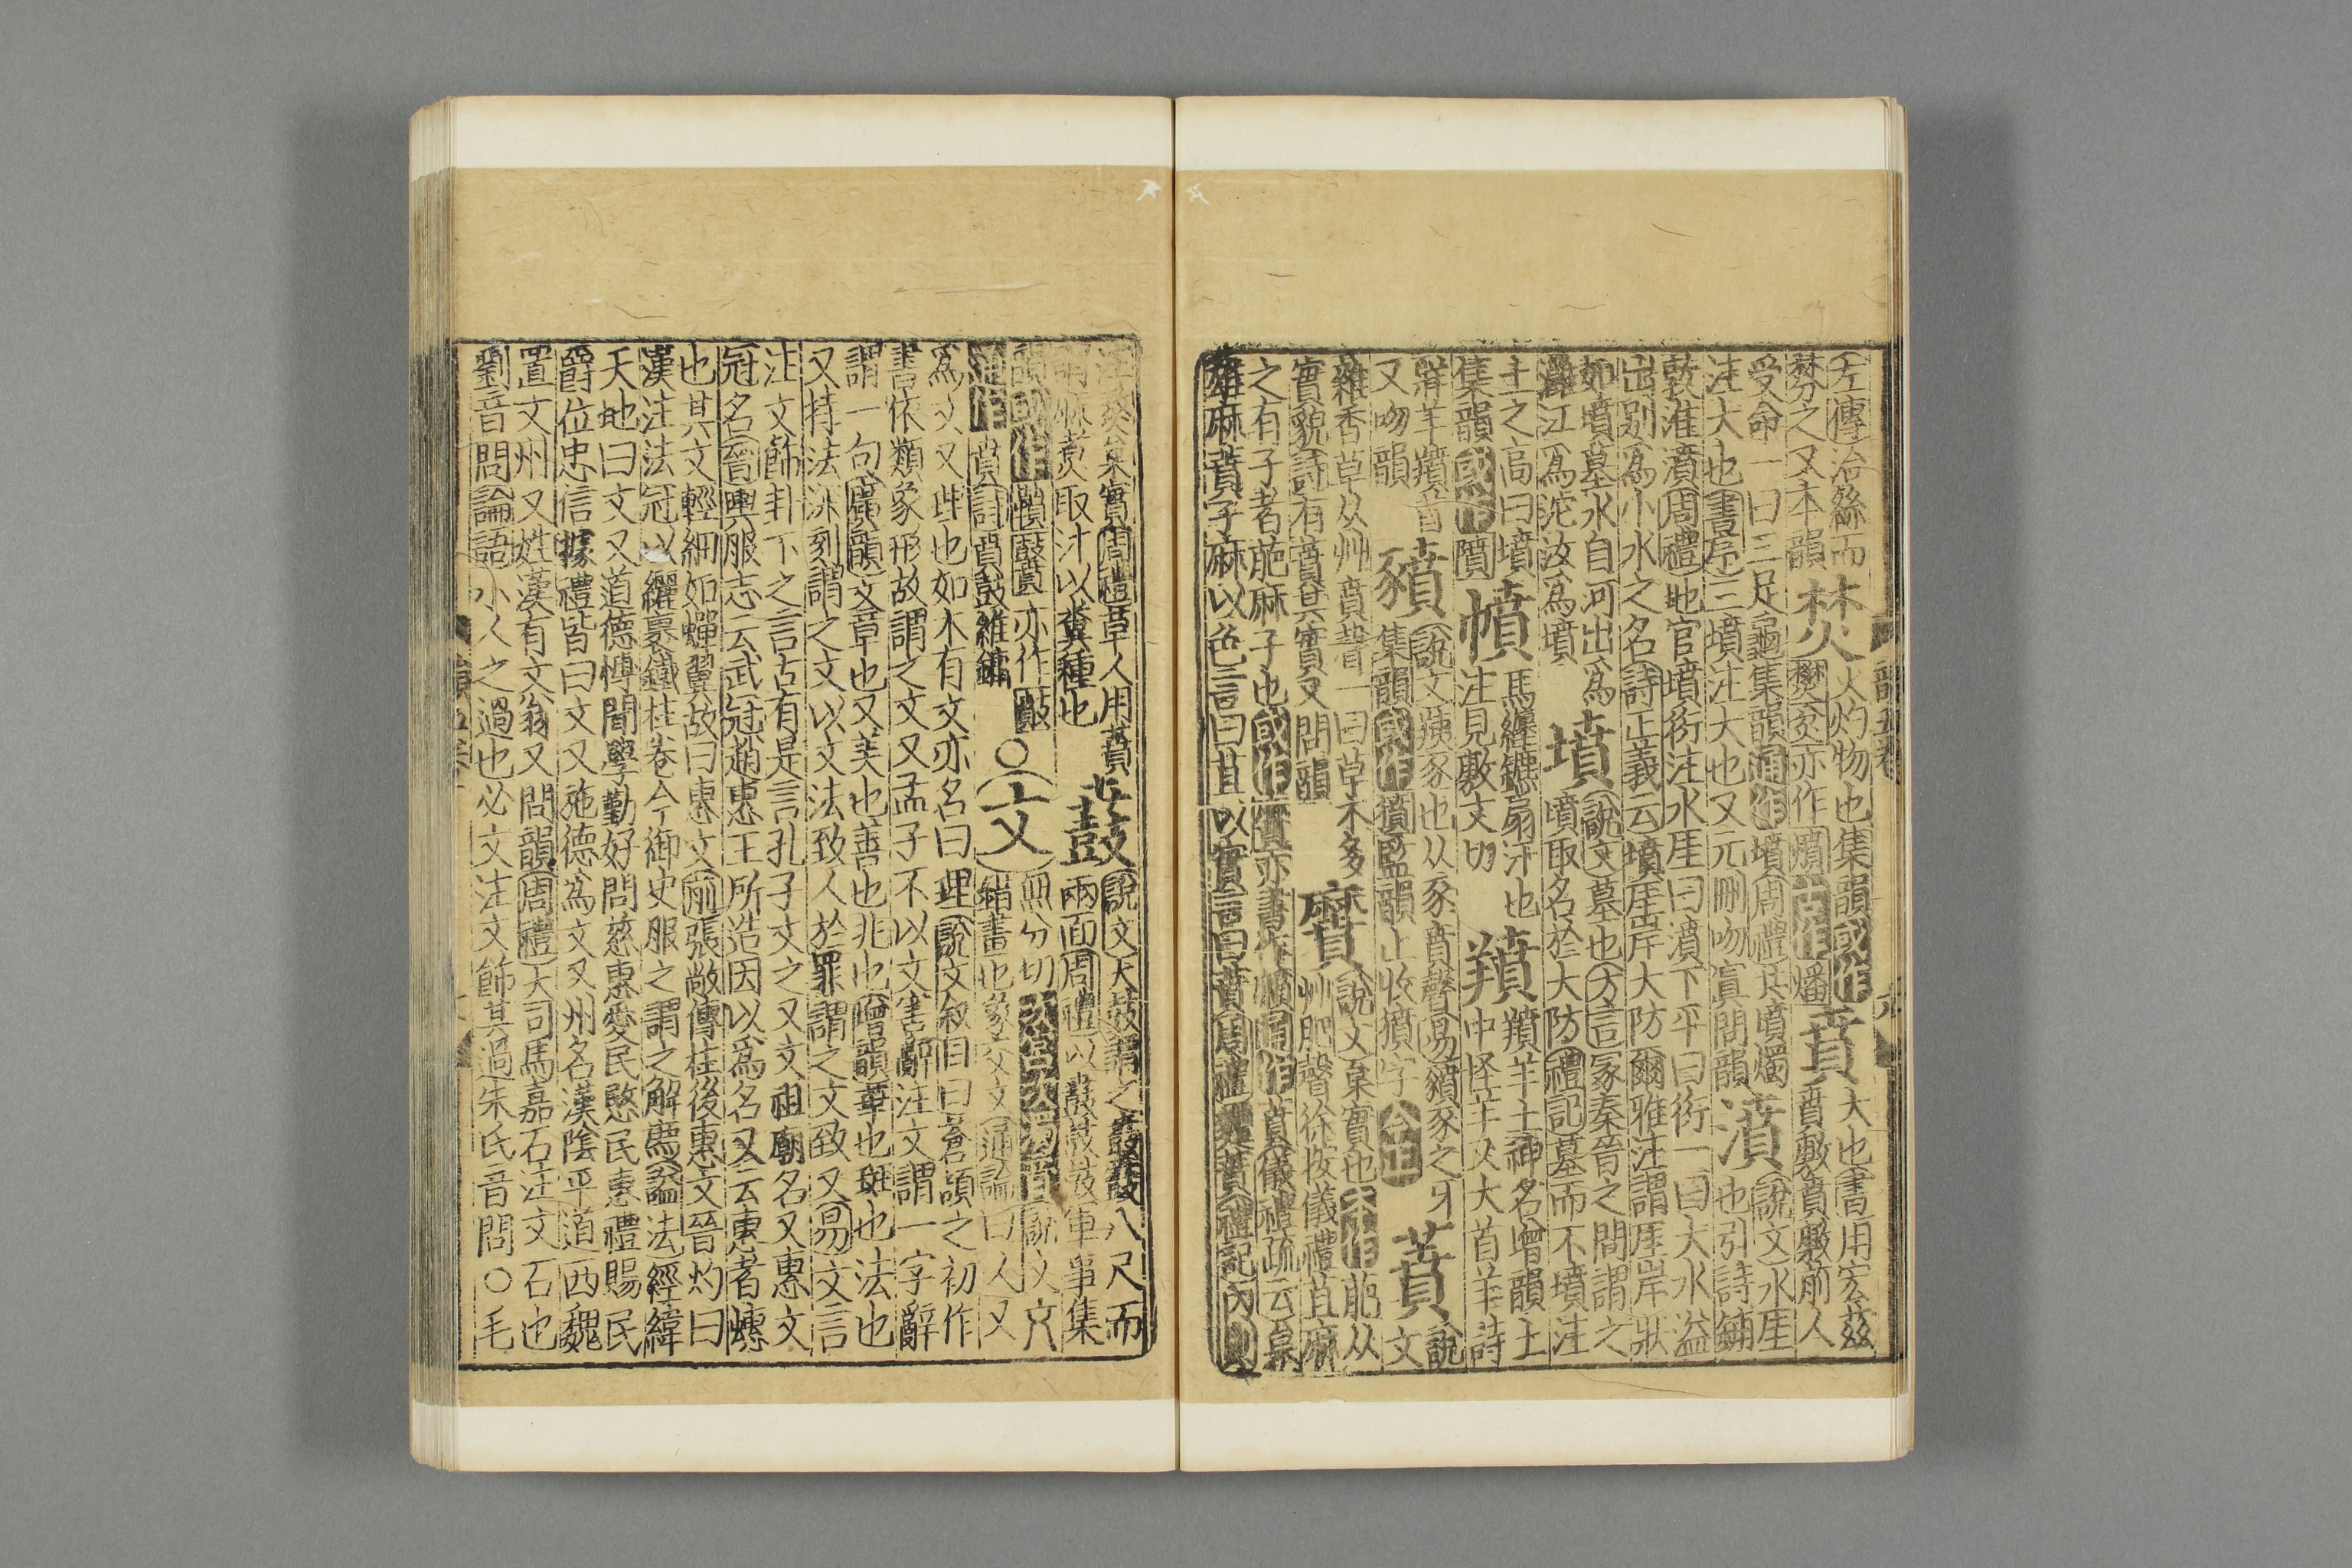 左傳治絲而
棼之又本韻
焚
火灼物也集韻國作
燓炃亦作燌古作燔
賁
大也書用宏兹
賁敷賁敷前人
受命一曰三足龜集韻通作墳周禮共墳燭
注大也書序三墳注大也又元刪吻寘問韻
濆
說文水厓
也引詩鋪
敦淮濆周禮地官墳衍注水厓曰濆下平曰衍一曰大水溢
出別爲小水之名詩正義云墳厓岸大防爾雅注謂厓岸狀
如墳墓水自河出爲
灉江爲沱汝爲墳
墳
說文墓也方言冢秦晉之間謂之
墳取名於大防禮記墓而不墳注
土之高曰墳
集韻國作隫
幩
馬纏鑣扇汗也
注見敷文切
羵
羵羊土神名增韻土
中怪羊又大首羊詩
牂羊羵首
又吻韻
豶
說文羠豕也从豕賁聲易豶豕之牙
集韻國作獖監韻止收獖字今正
蕡
說
文
雜香草从艸賁聲一曰草木多
實貌詩有蕡其實又問韻
黂
說文枲實也本作萉从
艸肥聲徐按儀禮苴麻
之有子者萉麻子也國作䕊亦書作𪎰通作蕡儀禮疏云枲
雄麻蕡子麻以色言曰苴以實言曰蕡周禮麷蕡禮記內則
注熬枲實周禮草人用蕡
謂麻煑取汁以糞種也
鼖
說文大鼓謂之鼖鼖鼓八尺而
兩面周禮以鼖鼓鼓軍事集
韻國作䩿鼖䕊亦作𪔜
通作賁詩賁鼓維鏞
○文
無分切
說文文
錯畫也象交文通論曰人又
爲文又此也如木有文亦名曰理說文叙目曰蒼頡之初作
書依類象形故謂之文又孟子不以文害辭注文謂一字辭
謂一句廣韻文章也又美也善也兆也增韻華也斑也法也
又持法深刻謂之文以文法致人於罪謂之文致又易文言
注文飾卦下之言古有是言孔子文之又文祖廟名又惠文
冠名晉輿服志云武冠趙惠王所造因以爲名又云惠者蟪
也其文輕細如蟬翼故曰惠文前張敞傳柱後惠文晉灼曰
漢注法冠以纚裹鐵柱卷今御史服之謂之解廌謚法經緯
天地曰文又道德博聞學勤好問慈惠愛民愍民惠禮賜民
爵位忠信據禮皆曰文又施德爲文又州名漢陰平道西魏
置文州又姓漢有文翁又問韻周禮大司馬嘉石注文石也
劉音問論語小人之過也必文注文飾其過朱氏音問○毛